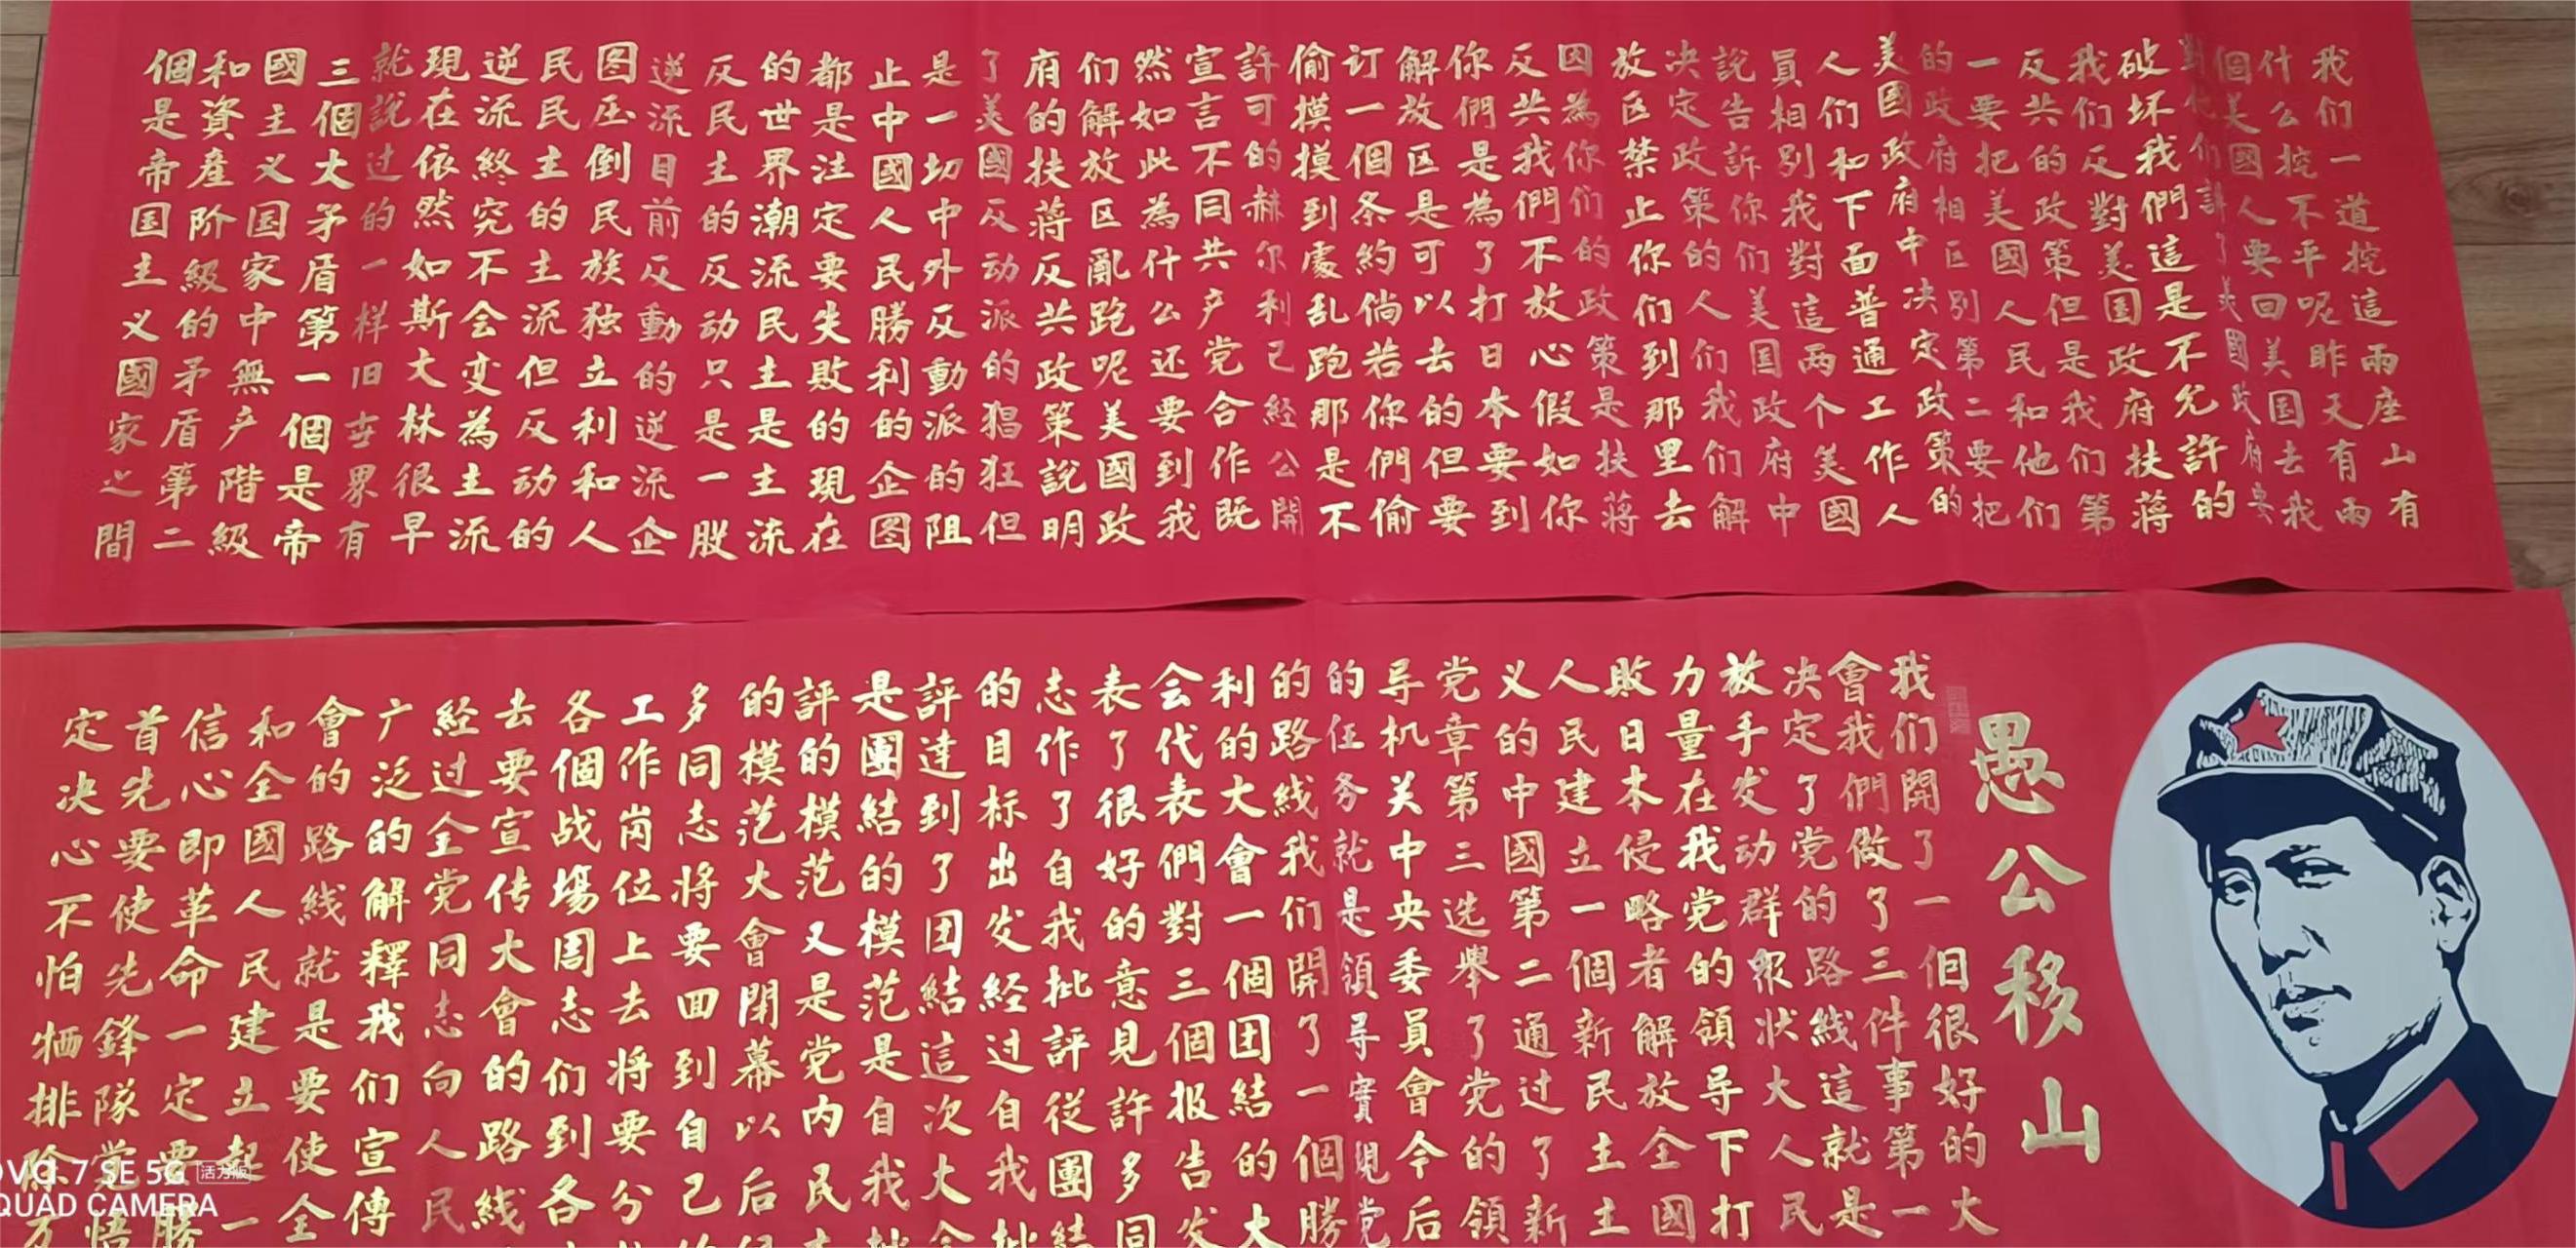 我们一道挖這兩座山有
什么挖不平呢昨天有兩
個美國人要回美国去我
對他们講了美國政府要
破坏我們這是不允許的
我们反對美国政府扶蔣
反共的政策但是我们第
一要把美國人民和他们
的政府相区别第二要把
美國政府中决定政策的
人们和下面普通工作人
員相别我對這两个美國
說告訴你们美国政府中
决定政策的人们我们解
放区禁止你们到那里去
因為你们的政策是扶蔣
反共我們不放心假如你
你們是為了打日本要到
解放区是可以去的但要
订一個条約倘若你們偷
偷摸摸到處乱跑那是不
許可的赫尔利已經公開
宣言不同共产党合作既
然如此為什么还要到我
们解放区亂跑呢美國政
府的扶蔣反共政策說明
了美國反动派的猖狂但
是一切中外反動派的阻
止中國人民勝利的企图
都是注定要失敗的現在
的世界潮流民主是主流
反民主的反动只是一股
逆流目前反動的逆流企
图压倒民族独立利和人
民民主的主流但反动的
逆流終究不会变為主流
現在依然如斯大林很早
就說过的一样旧世界有
三個大矛盾第一個是帝
國主义国家中無产階級
和資産阶級的矛盾第二
個是帝国主义國家之間
愚公移山
我们開了一個很好的大
會我們做了三件事第一
决定了党的路线這就是
放手发动群眾状大人民
力量在我党的領导下打
敗日本侵略者解放全國
人民建立一個新民主主
义的中國第二通过了新
党章第三选舉了党的領
导机关中央委員會今后
的任务就是領导實現党
的路线我们開了一個勝
利的大會一個团結的大
会代表們對三個报告发
表了很好的意見許多同
志作了自我批評從團結
的目标出发經过自我批
評達到了团結這次大会
是團結的模范是自我批
評的模范又是党内民主
的模范大會閉幕以后
多同志將要回到自己
工作岗位上去將要分
各個战場周志们到各
去要宣传大會的路线
經过全党同志向人民
广泛的解釋我们宣傳
會的路线就是要使全
和全國人民建立起一
信心即革命一定要勝
首先要使先鋒隊觉悟
定决心不怕牺牲排除万
OVA 7 SE 5G 活力版
QUAD CAMERA